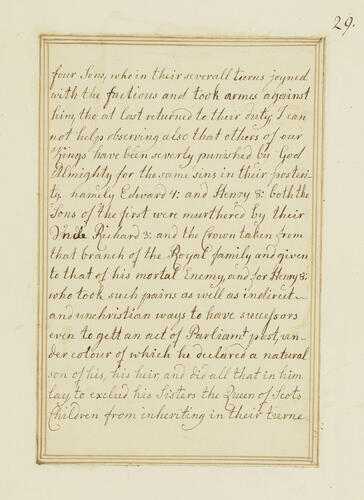 29.
four Sons, who in their severall turns joyned
with the factious and took armes against
him, tho at last returned to their duty, I can
not help observing also that others of our
Kings have been severly punished by God
Almighty for the same sins in their posteri-
ty, namely Edward 4: and Henry 8: both the
Sons of the first were murthered by their
Uncle Richard 3: and the Crown taken from
that branch of the Royal family and given
to that of his mortal Enemy, and for Henry 8:
who took such pains as well as indirect
and unchristian ways to have successors
even to gett an act of Parliamt past, un-
der colour of which he declared a natural
son of his, his heir, and did all that in him
lay to exclud his Sisters the Queen of Scots
Children from inheriting in their turne